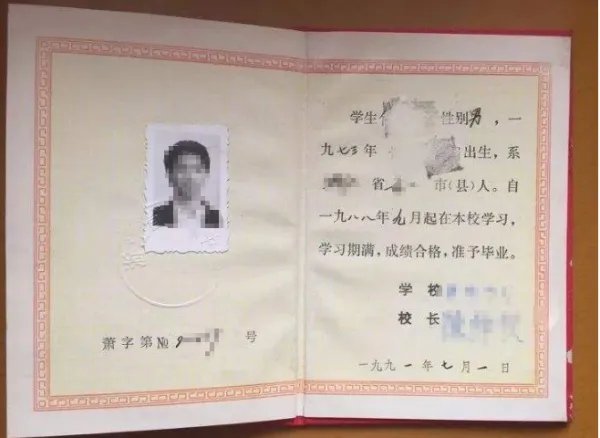 萧字第№ 号
学生 性别男,一
九七三年 出生,系
省 市(县)人。自
一九八八年九月起在本校学习,
学习期满,成绩合格,准予毕业。
学校
校长
一九九一年七月一日